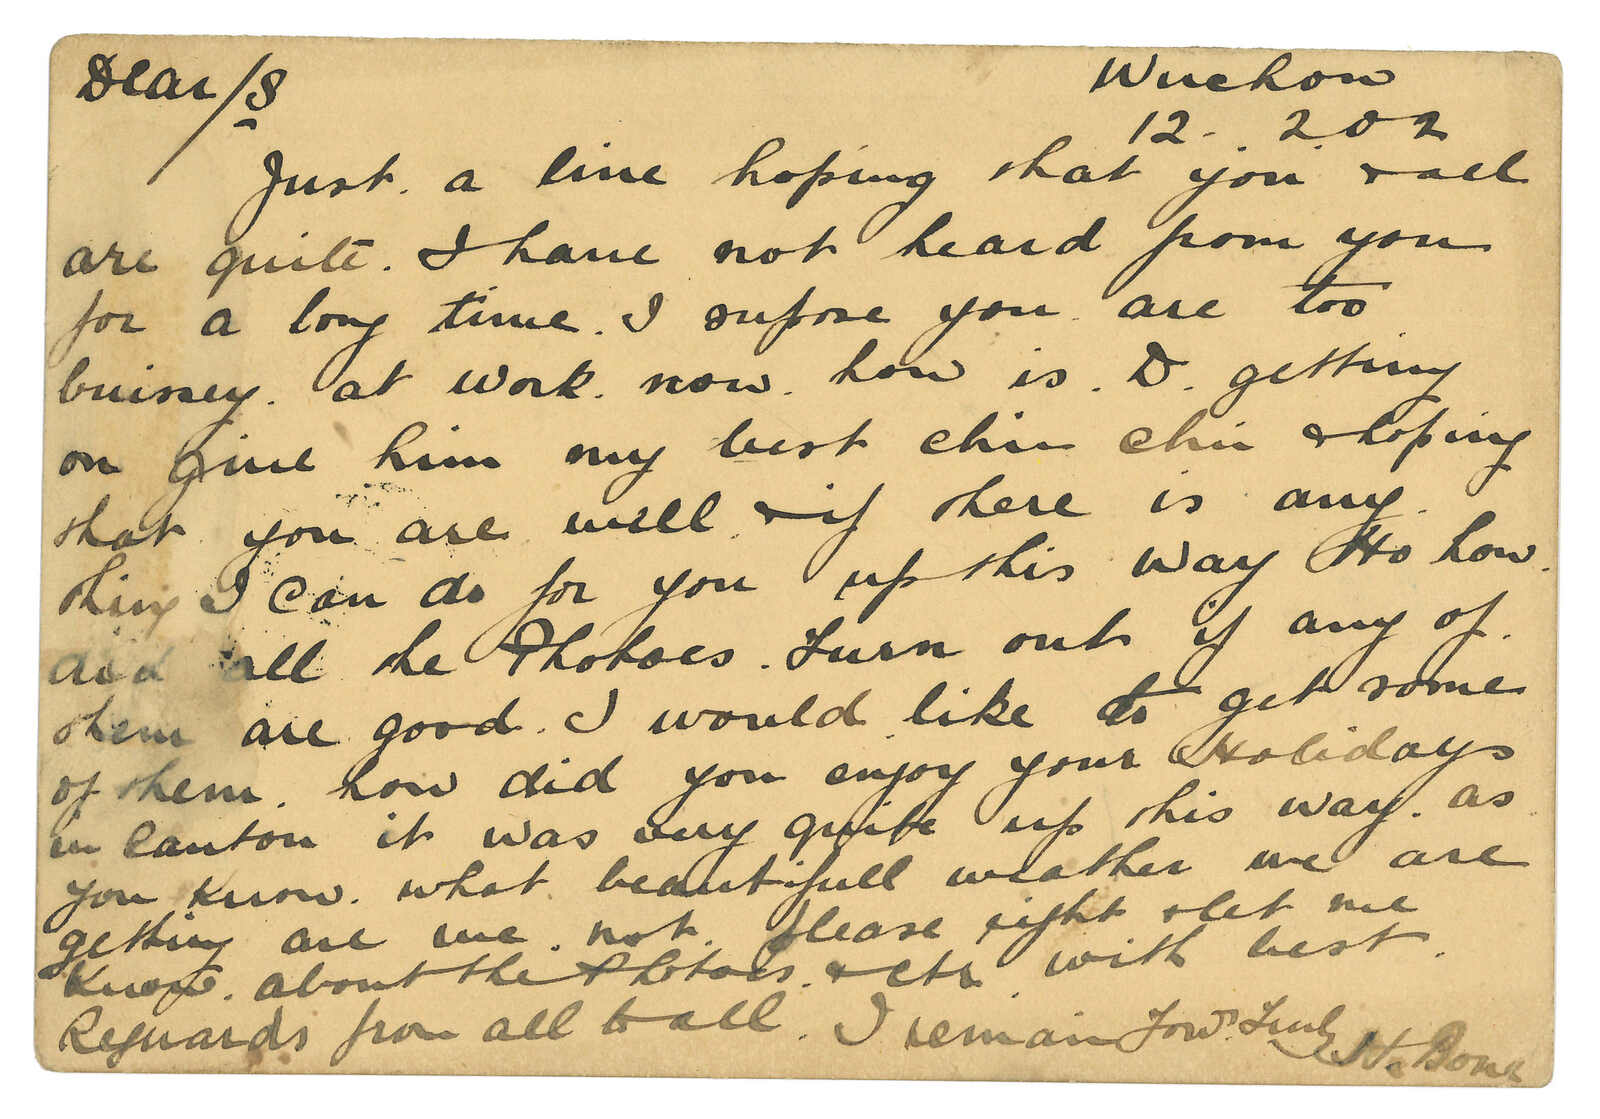 Dear /S
Wuchow
12. 2 02
Just. a line hoping that you & all
are quite. I have not heard from you
for a long time. I supose you are too
buissey. at work. now. how is. D. getting
on give him my best chin chin & hoping
that you are well & if there is any.
thing I can do for you up this way Ho how.
did all the Photoes. Turn out if any of.
them are good. I would like to get some
of them. how did you enjoy your Holidays
in Canton it was very quite up this way. as
you know. what beautifull weather we are
getting are we. not. please right & let me
Know. about the Photoes. & ctr with best.
Reguards from all to all. I remain Yours Truly
H. Bone